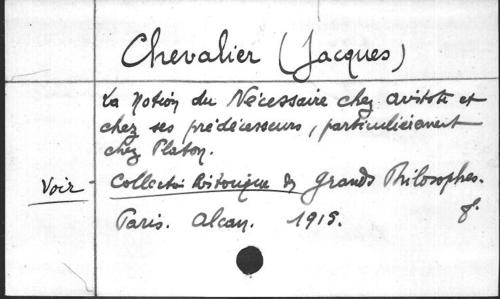 Chevalier (Jacques)
La Notion du Nécessaire chez Aristote et
chez ses prédécesseurs, particulièrement
chez Platon.
Voir - Collection historique des Grands Philosophes.
Paris. Alcan. 1915. 8°.